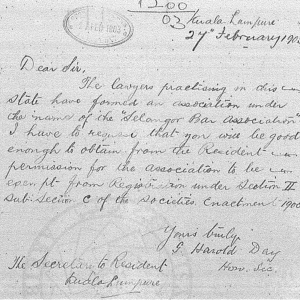 1200
03
Kuala Lumpur
27th February 190
Dear Sir,
The lawyers practising in this
State have formed an association under
the name of the "Selangor Bar Association"
I have to request that you will be good
enough to obtain from the Resident
permission for the association to be
exempt from Registration under Section II
Sub-Section C of the Societies Enactment 190
Yours truly
Harold Day
Hon. Sec.
The Secretary to Resident
Kuala Lumpur